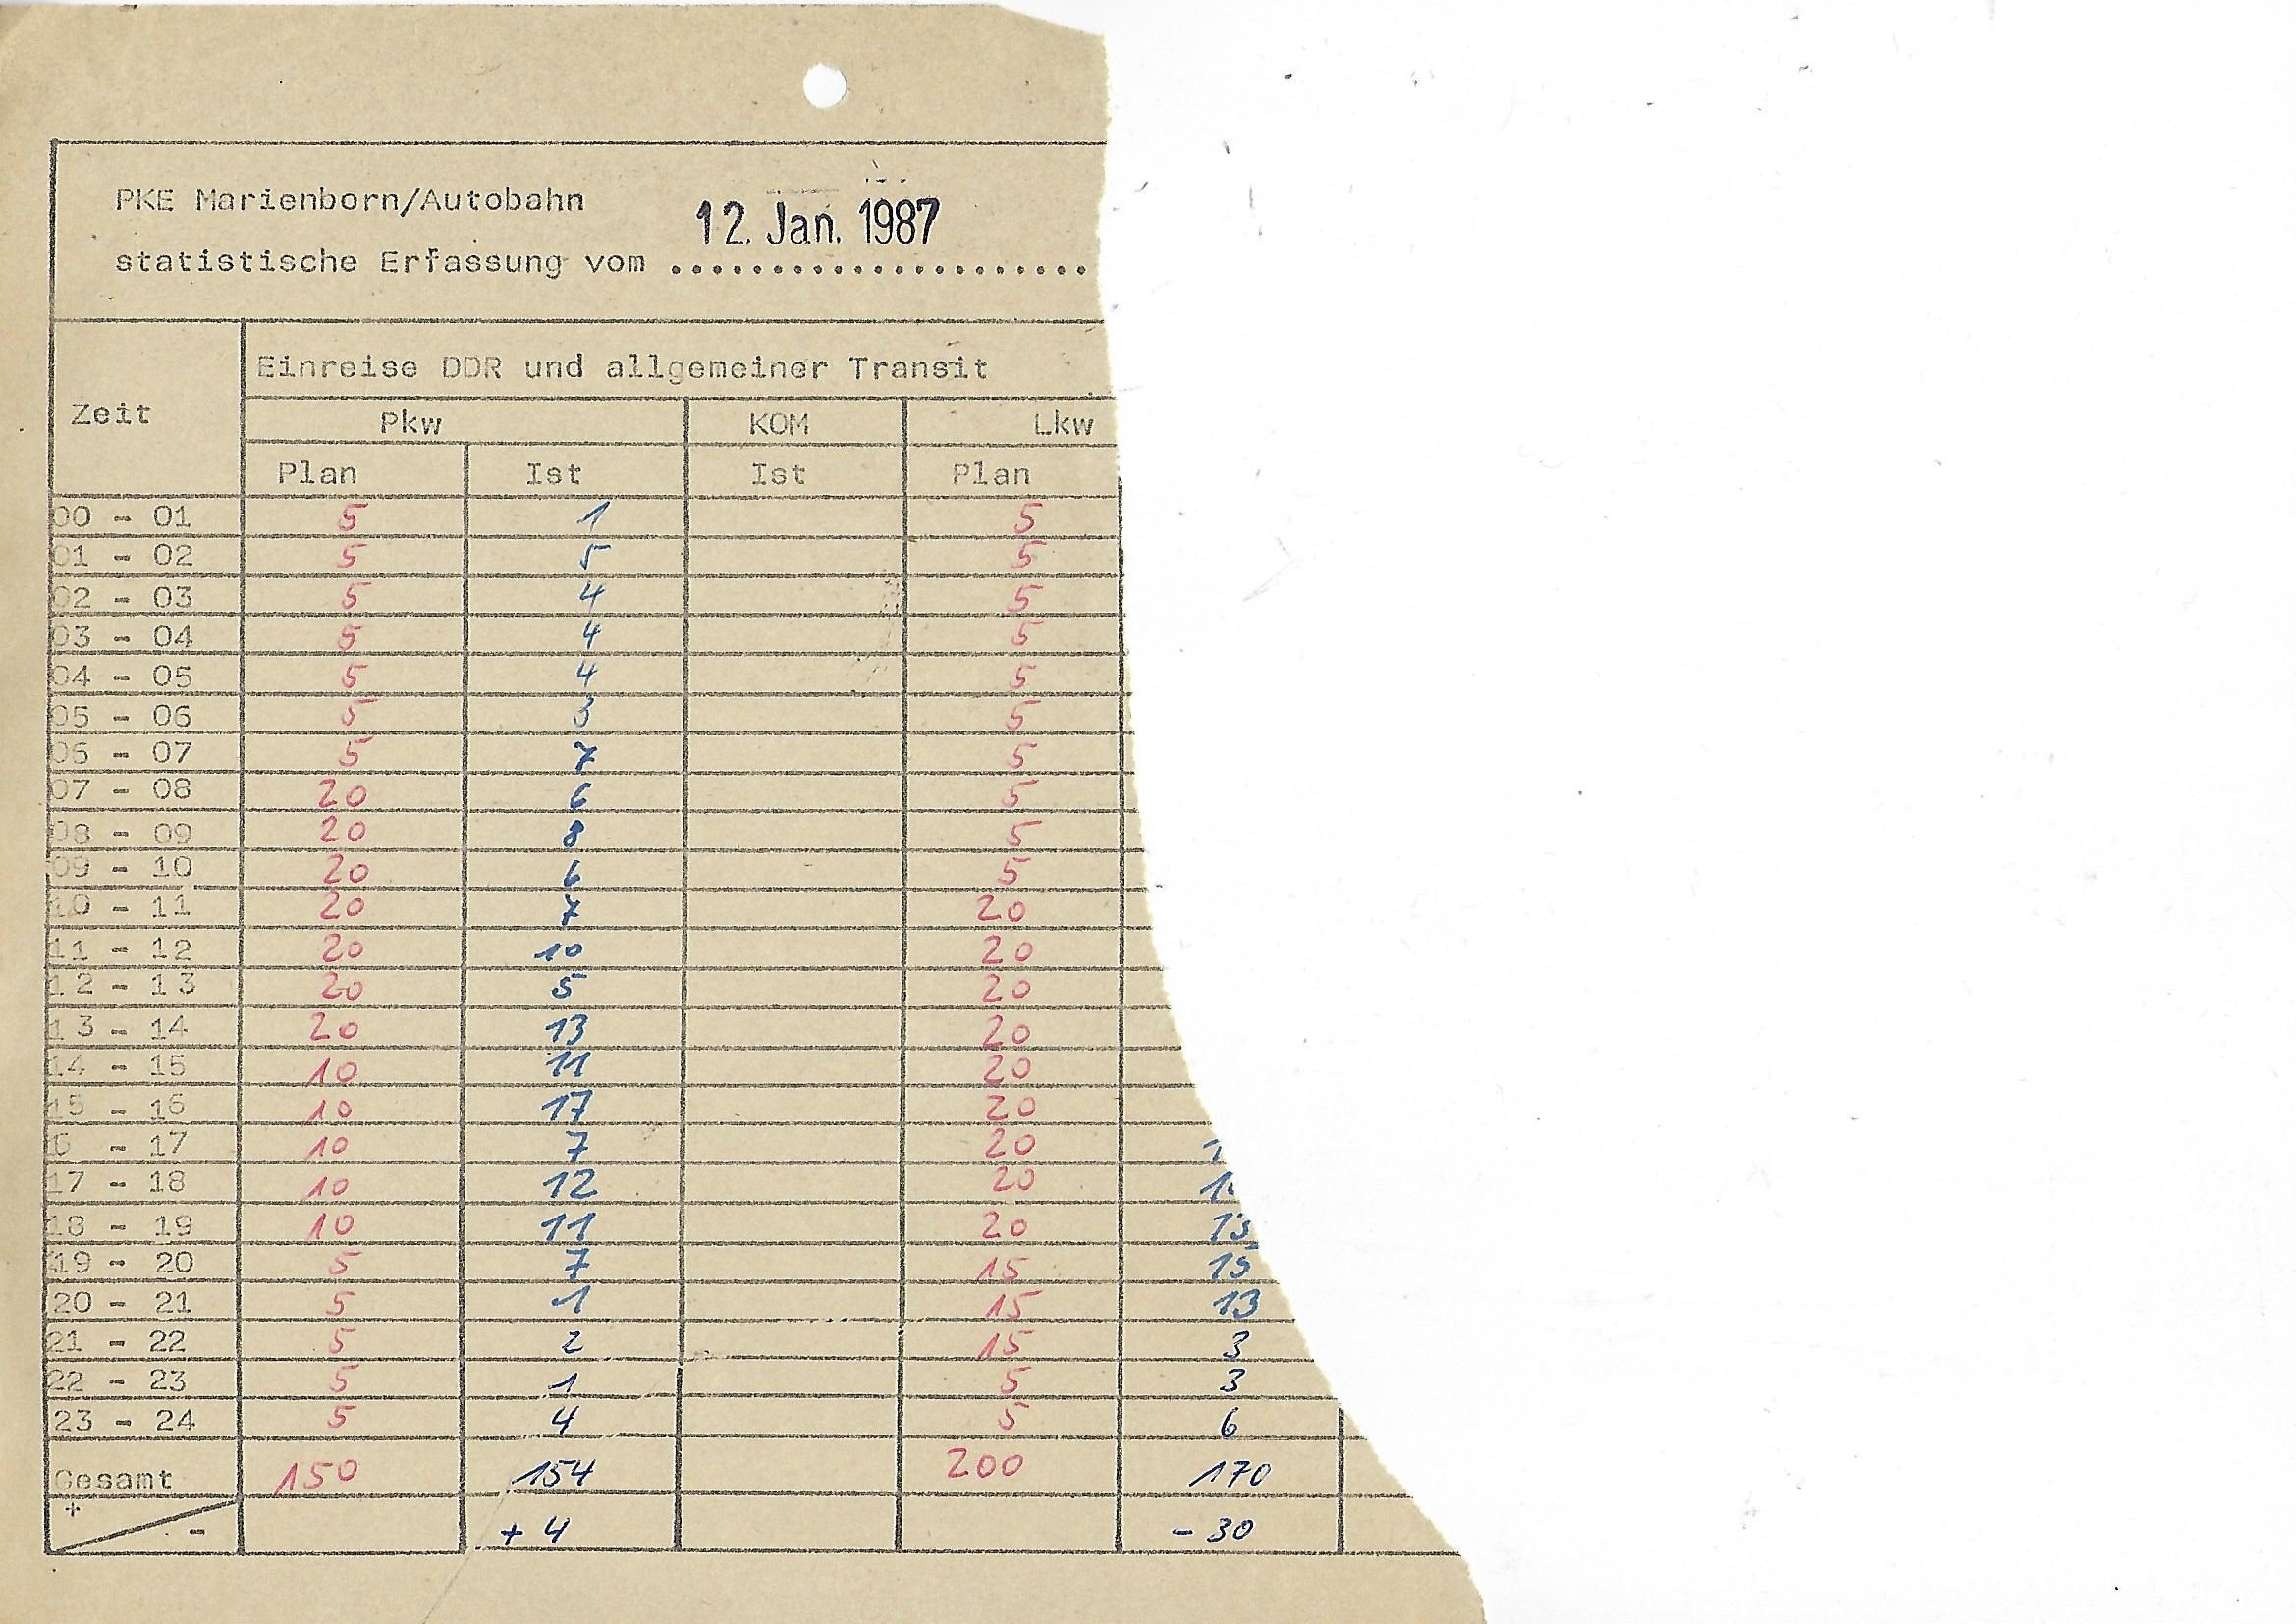 PKE Marienborn/Autobahn
12. Jan. 1987
statistische Erfassung vom ......................
Einreise DDR und allgemeiner Transit
Zeit
Pkw KOM Lkw
Plan Ist Ist Plan
00 - 01 5 1 5
01 - 02 5 5 5
02 - 03 5 4 5
03 - 04 5 4 5
04 - 05 5 4 5
05 - 06 5 3 5
06 - 07 5 7 5
07 - 08 20 6 5
08 - 09 20 8 5
09 - 10 20 6 5
10 - 11 20 7 20
11 - 12 20 10 20
12 - 13 20 5 20
13 - 14 20 13 20
14 - 15 10 11 20
15 - 16 10 17 20
6 - 17 10 7 20
17 - 18 10 12 20
18 - 19 10 11 20 13
19 - 20 5 7 15 15
20 - 21 5 1 15 13
21 - 22 5 2 15 3
22 - 23 5 1 5 3
23 - 24 5 4 5 6
Gesamt 150 154 200 170
+
- + 4 - 30